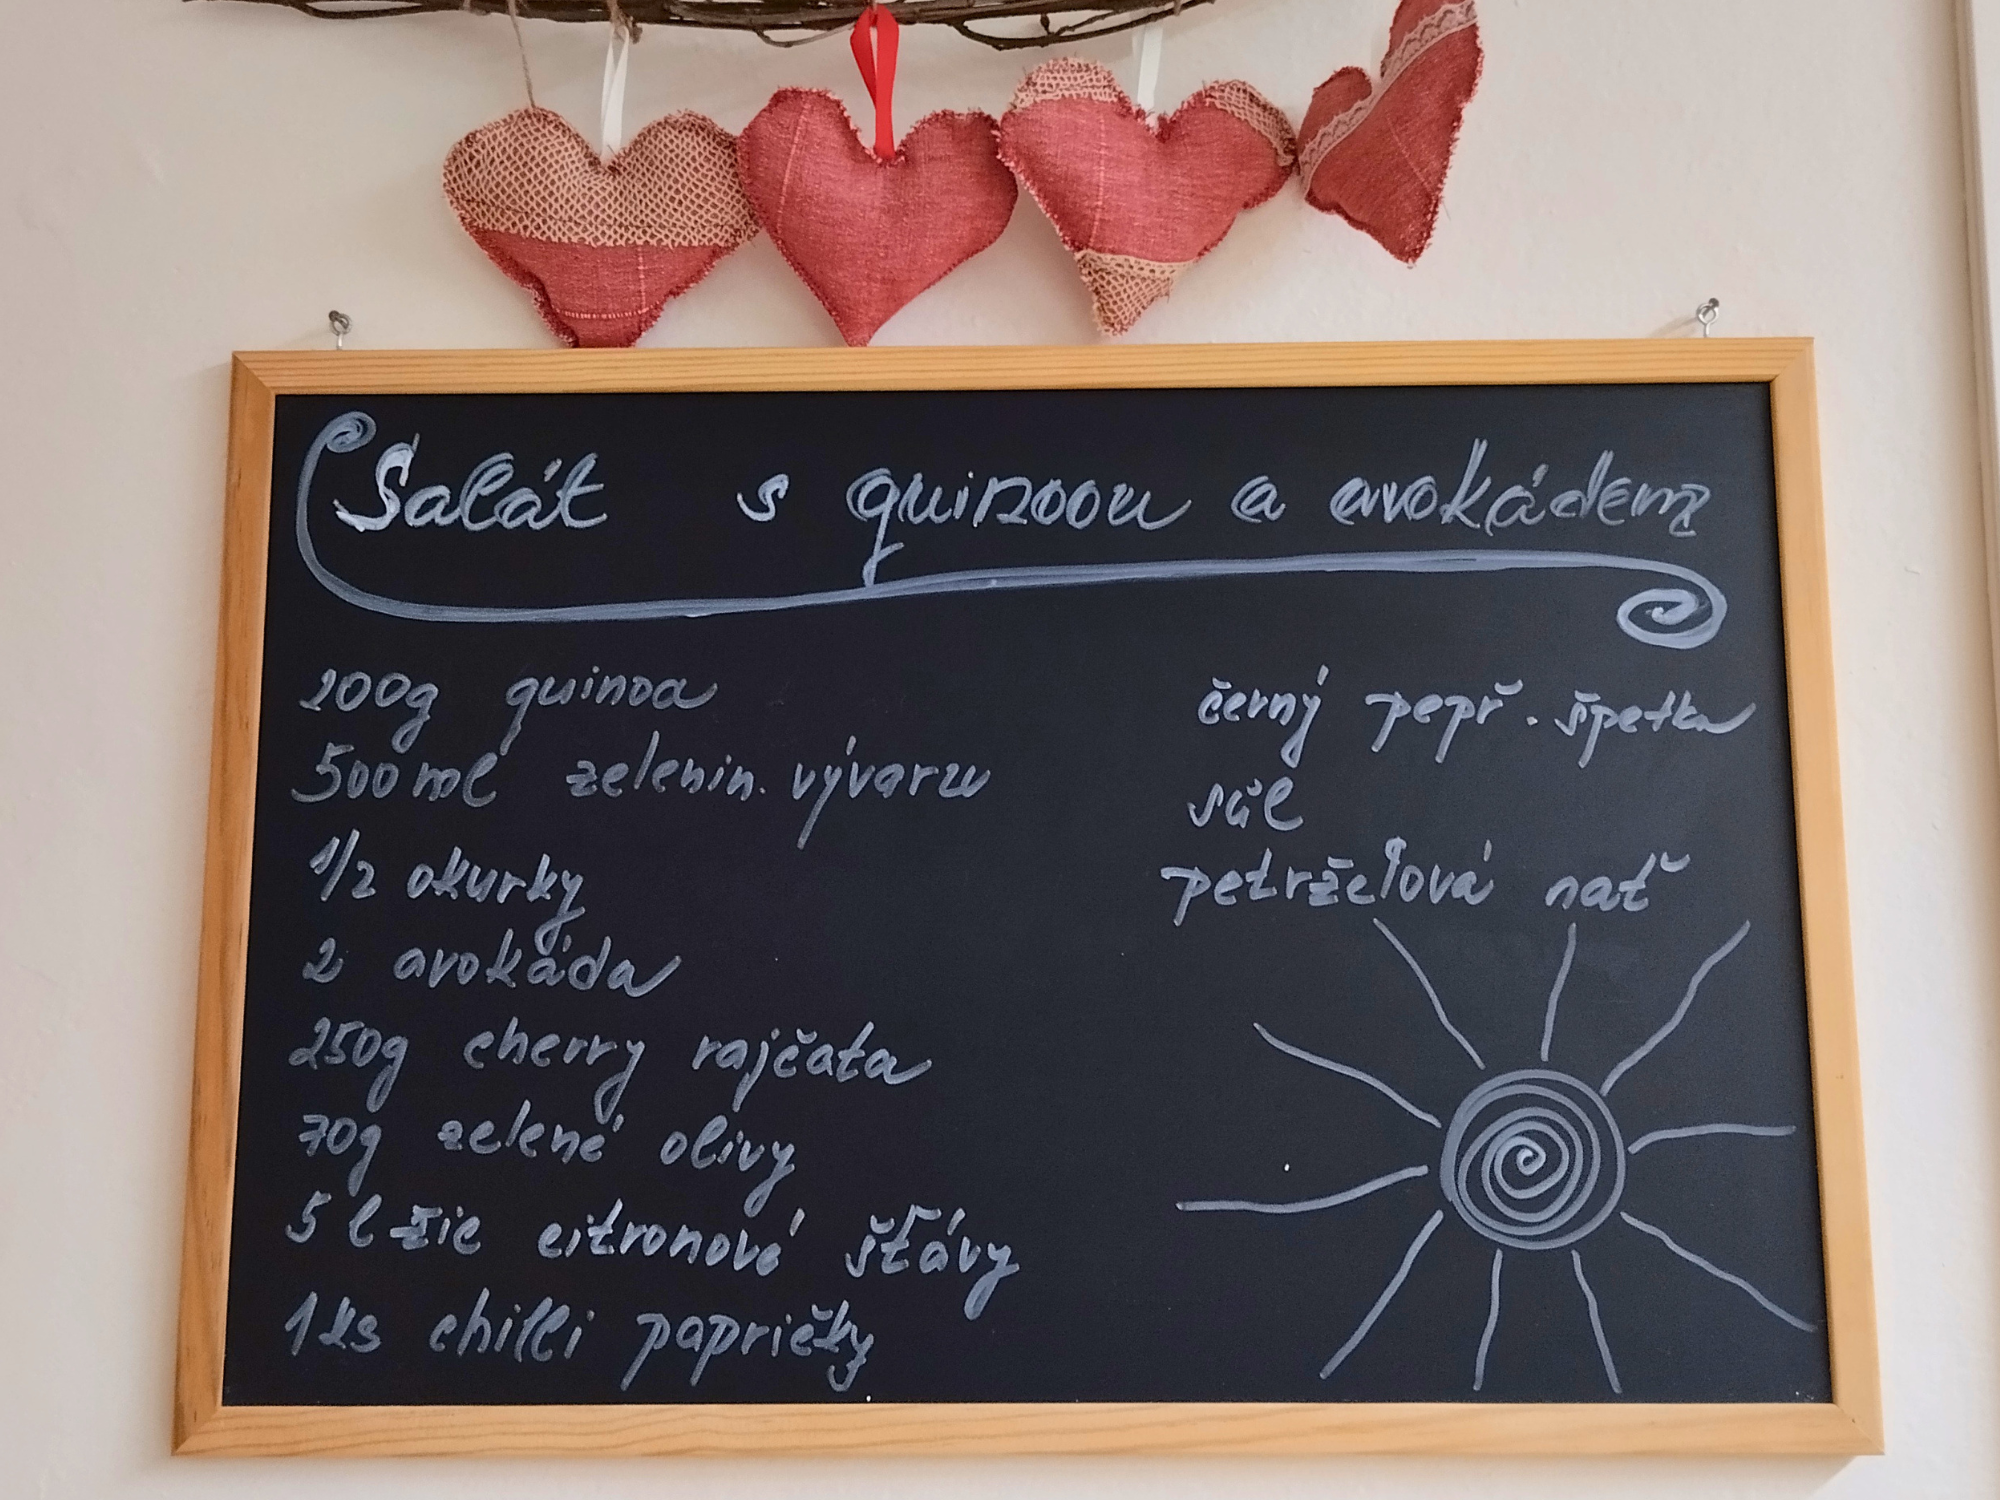 Salát s quinoou a avokádem
200g quinoa
500 ml zelenin. vývaru
1/2 okurky
2 avokáda
250g cherry rajčata
70g zelené olivy
5 lžic citronové šťávy
1 ks chilli papričky
černý pepř. špetka
sůl
petrželová nať